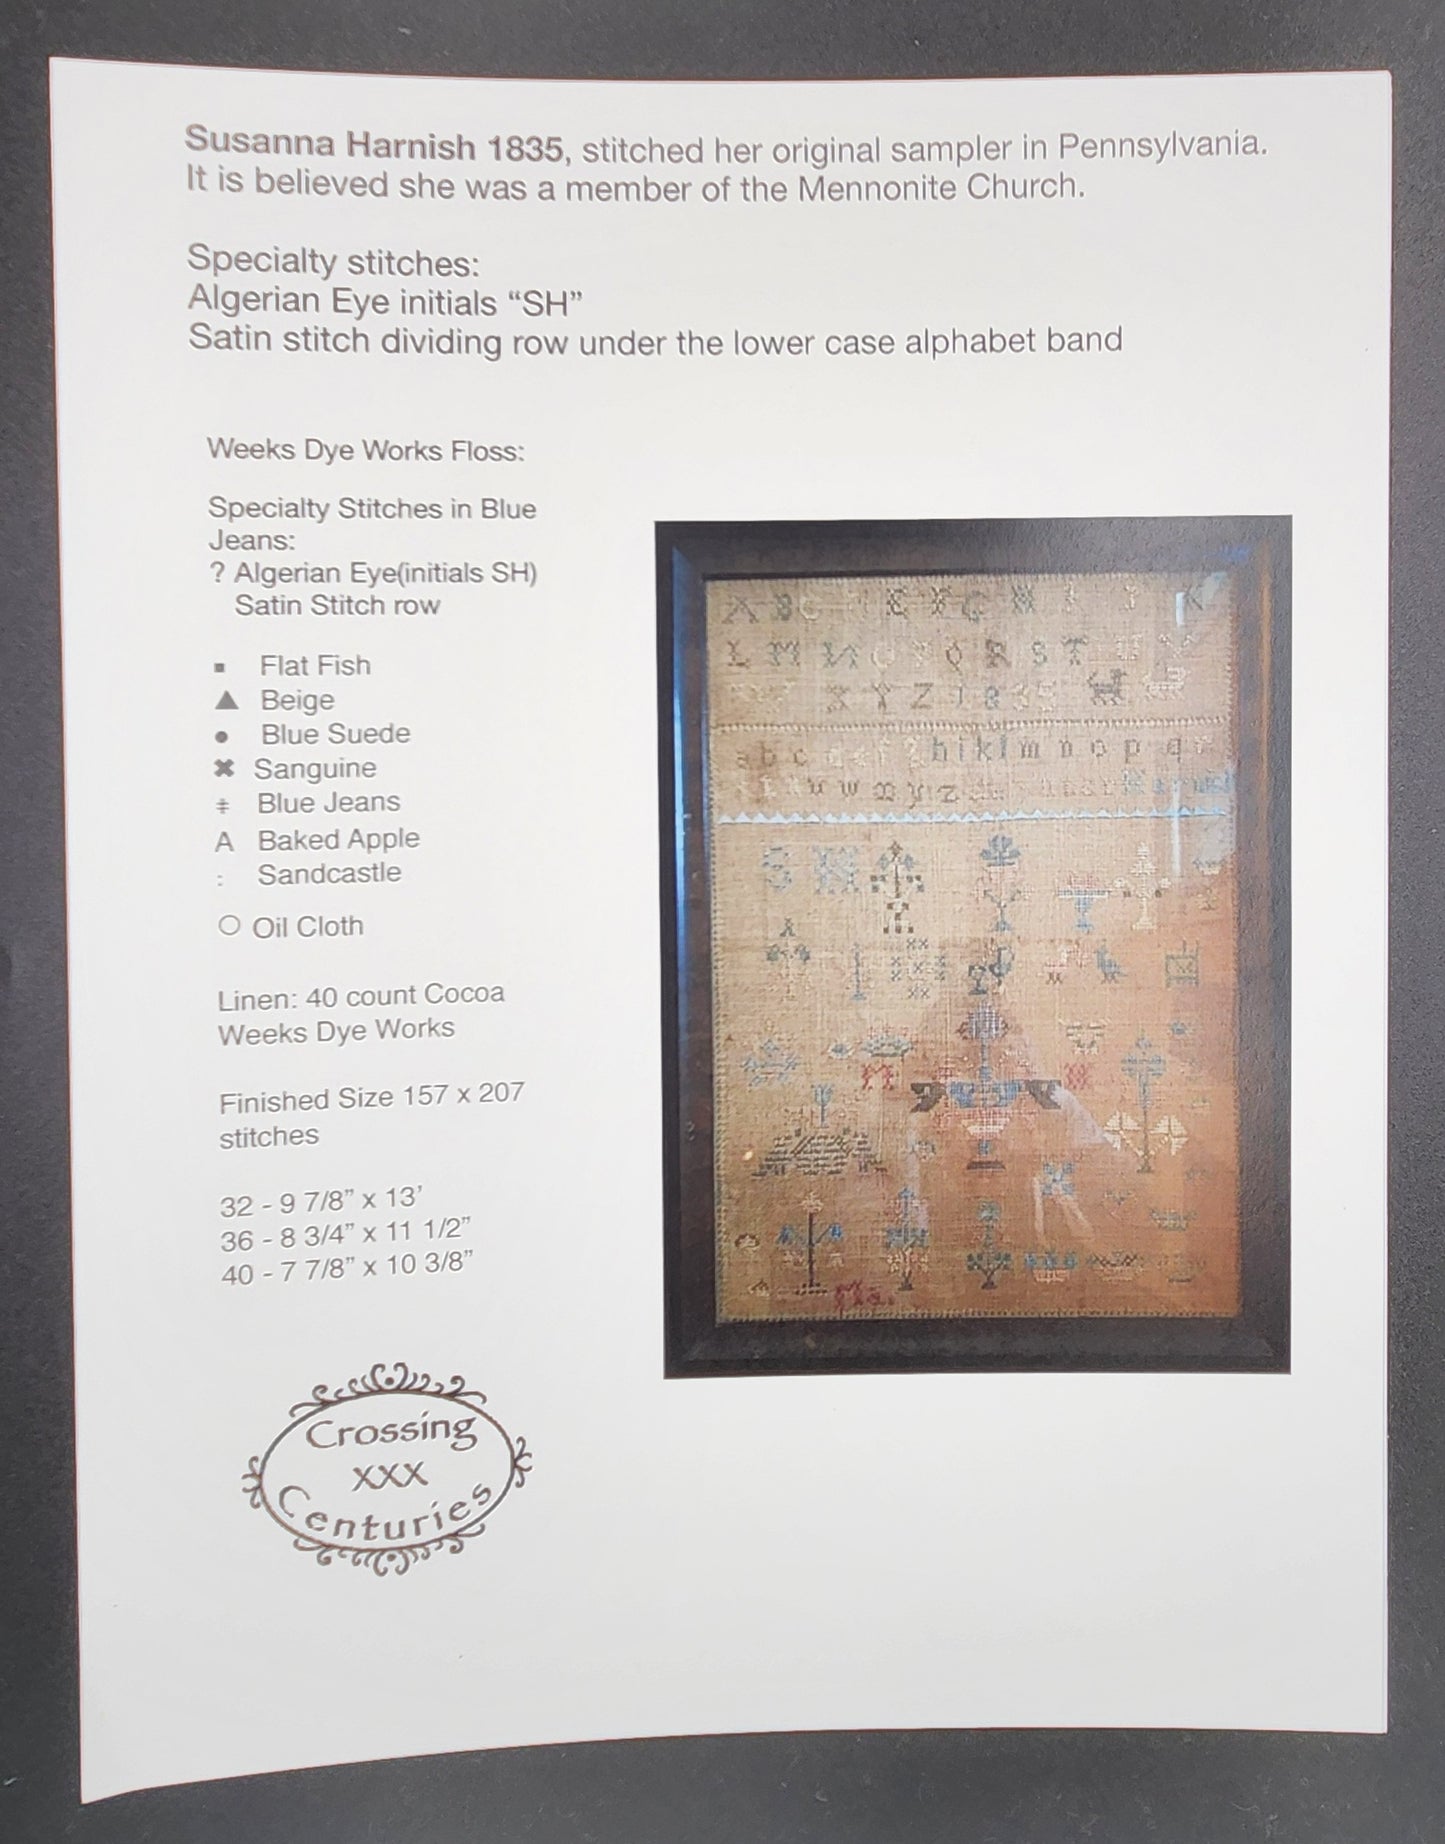 Susanna Harnish 1835, stitched her original sampler in Pennsylvania.
It is believed she was a member of the Mennonite Church.
Specialty stitches:
Algerian Eye initials “SH”
Satin stitch dividing row under the lower case alphabet band
Weeks Dye Works Floss:
Specialty Stitches in Blue
Jeans:
? Algerian Eye(initials SH)
Satin Stitch row
▪ Flat Fish
▲ Beige
● Blue Suede
✖ Sanguine
‡ Blue Jeans
A Baked Apple
: Sandcastle
○ Oil Cloth
Linen: 40 count Cocoa
Weeks Dye Works
Finished Size 157 x 207
stitches
32 - 9 7/8” x 13’
36 - 8 3/4” x 11 1/2”
40 - 7 7/8” x 10 3/8”
Crossing
XXX
Centuries
A B C E F G H I K
L M N O P Q R S T U V
X Y Z 1835
a b c d e f g h i k l m n o p q r
u w x y z
S H